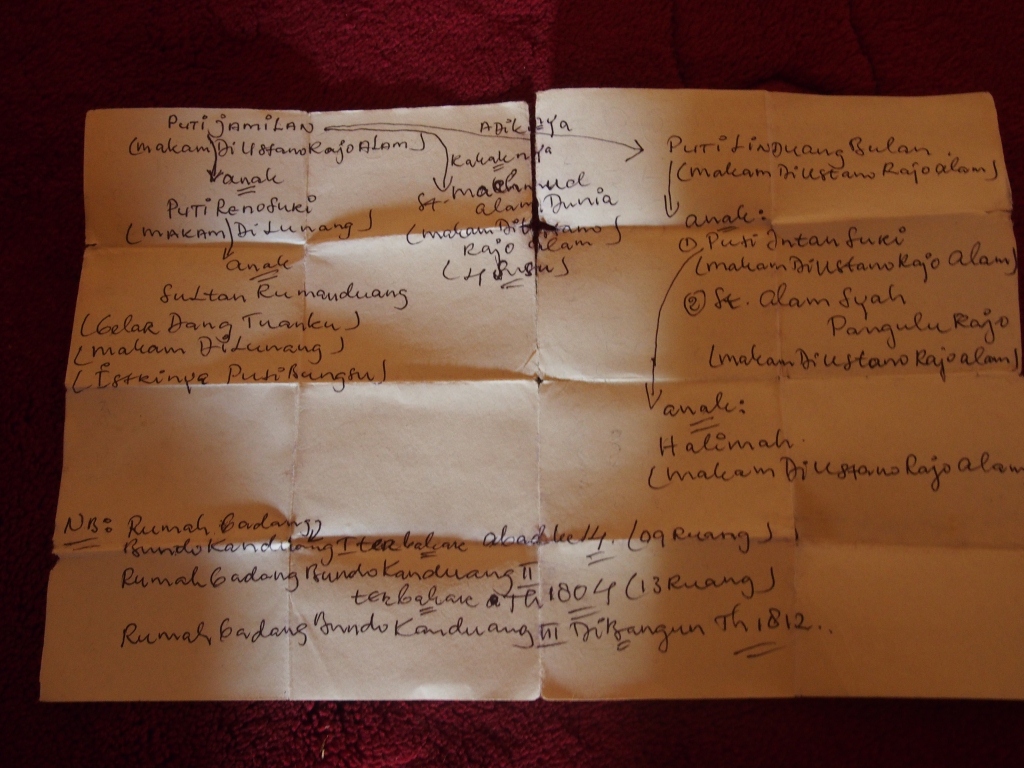 PUTI JAMILAN
(makam DiUstano Rajo ALAM)
anak
PUTI Reno SURI
(MAKAM DiLunang)
anak
Sultan Rumanduang
(Gelar Dang Tuanku)
(makam DiLunang)
(Istrinya Puti Bungsu)
Kakaknya
St. machmud
alam Dunia
(makam DiUstano
Rajo alam)
Adiknya
PUTI Linduang Bulan
(makam DiUstano Rajo alam)
anak:
① Puti Intan Suri
(makam DiUstano Rajo Alam)
② St. Alam Syah
Pangulu Rajo
(makam DiUstano Rajo alam)
anak:
Halimah
(makam DiUstano Rajo Alam
NB: Rumah Gadang
Bundo Kanduang I terbakar abad ke 14. (09 Ruang)
Rumah Gadang Bundo Kanduang II
terbakar Th 1804 (13 Ruang)
Rumah Gadang Bundo Kanduang III DiBangun Th 1812..